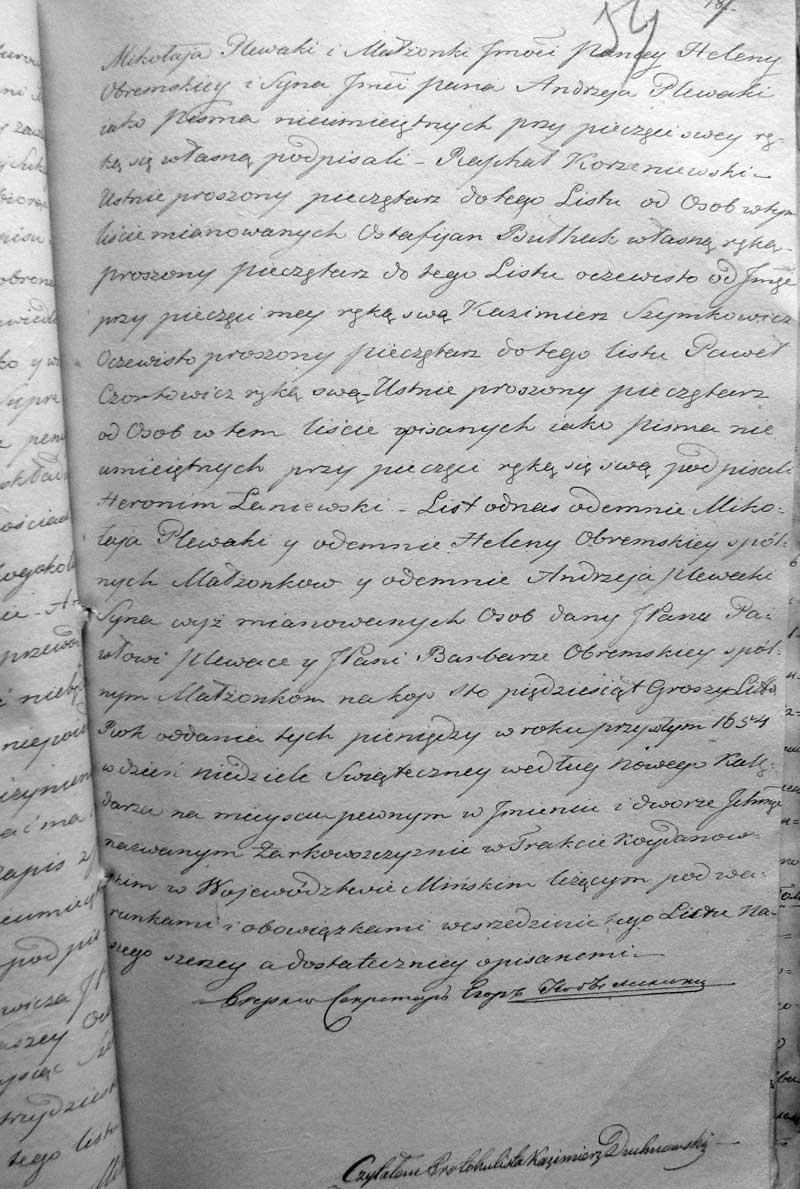 54
Mikołaja Plewaki i Małżonki Jmści paniey Heleny
Obremskiey i Syna Jmści pana Andrzeja Plewaki
iako pisma nieumieiętnych przy pieczęci swey rę-
ką się własną podpisali – Raphał Korzeniewski –
Ustnie proszony pieczętarz do tego Listu od Osob w tym
liście mianowanych Ostafijan Buthuk własną ręką –
proszony pieczętarz do tego Listu oczewisto od
przy pieczęci mey ręką swą Kazimierz Szymkowicz
Oczewisto proszony pieczętarz do tego listu Paweł
Czortowicz ręką swą – Ustnie proszony pieczętarz
od Osob w tem liście opisanych iako pisma nie
umieiętnych przy pieczęci ręką się swą podpisali
Heronim Łaniewski – List od nas odemnie Miko-
łaja Plewaki y odemnie Heleny Obremskiey spól-
nych Małżonkow y odemnie Andrzeja Plewaki
Syna wyż mianowanych Osob dany JPanu Pa-
włowi Plewace y JPani Barbarze Obremskiey spól-
nym Małżonkom na kop sto pięдziesiąt Groszy Litt.
Rok oddania tych pieniędzy w roku przyszłym 1654
w dzień niedziele Swiąteczney według nowego Kalę-
darza na mieyscu pewnym w Jmieniu i dworze
nazwanym Żarkowszczyznie w Trakcie Koydanow-
skim w Wojewódzstwie Mińskim leżącym pod wa-
runkami i obowiązkami weszrzedzinie tego Listu Na-
szego szerzey a dostateczniey opisanemi –
Секретарь Егоръ
Czytałem Protokulista Kazimierz Duchnowski